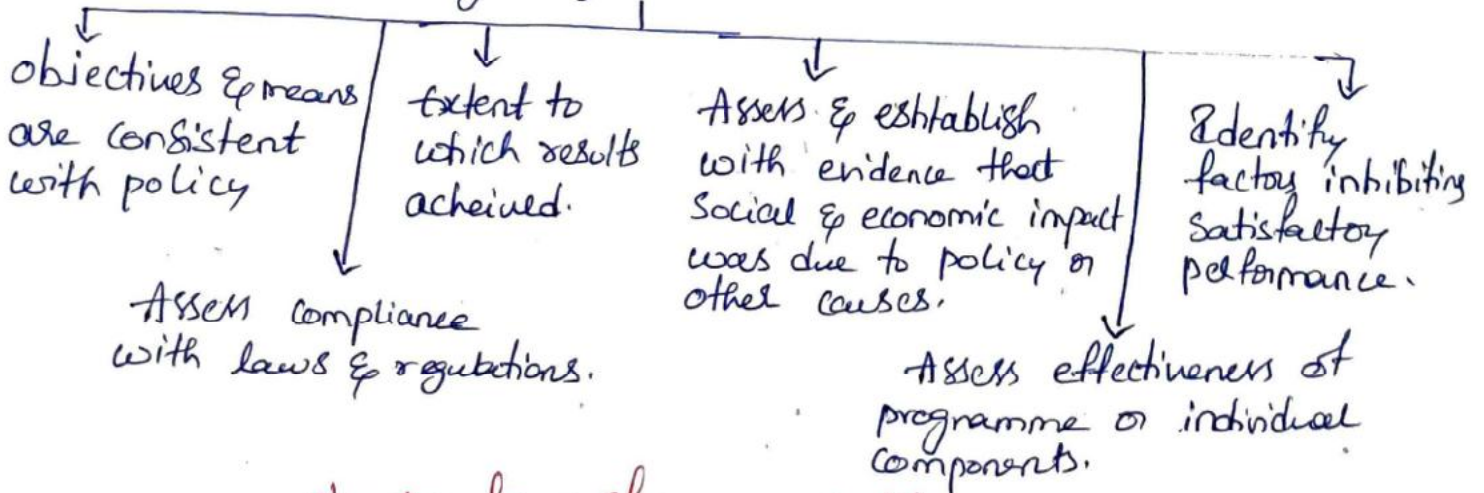 objectives & means
are consistent
with policy
Extent to
which results
acheived.
Assess & eshtablish
with evidence that
Social & economic impact
was due to policy or
other causes.
Identify
factors inhibiting
satisfactory
performance.
Assess compliance
with laws & regulations.
Assess effectiveness of
programme or individual
components.